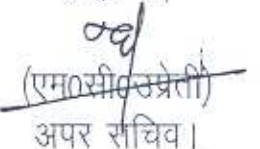 (एम०सी०उप्रेती)
अपर सचिव।